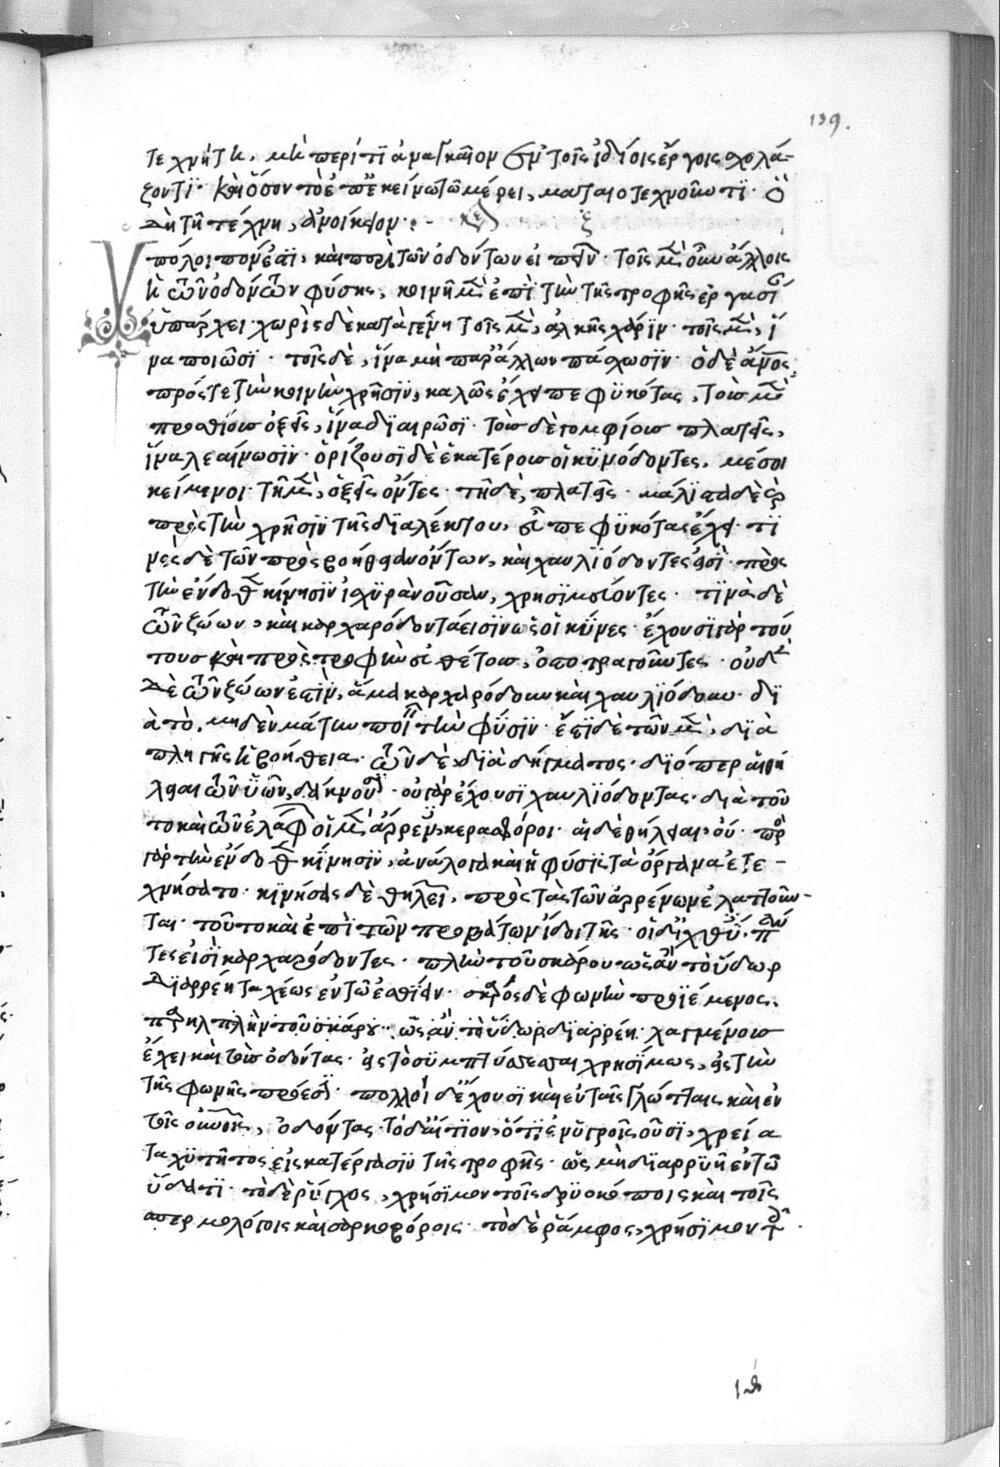 139.
τεχνήτη, μὴ περί τι ἀναγκαῖον ἐν τοῖς ἰδίοις ἔργοις σχολά-
ζοντι· καὶ ὅσον τὸ ἐπ' ἐκείνω τῶ μέρει, ματαιοτεχνοῦντι· ὃ
δὴ τῆ τέχνη, ἀνοίκειον·
ὑπόλοιπον
καὶ περὶ τῶν ὀδόντων εἰπεῖν· τοῖς μὲν οὖν ἄλλοις
ἡ τῶν ὀδόντων φύσις, κοινὴ μὲν ἐπὶ τὴν τῆς τροφῆς ἐργασί
ὑπάρχει· χωρὶς δὲ κατὰ γένη τοῖς μὲν, ἀλκῆς χάριν· τοῖς μὲν, ἵ
να ποιῶσι· τοῖς δὲ, ἵνα μὴ παρ' ἄλλων πάσχωσιν· ὁ δὲ ἄνος
πρός τε τὴν κοινὴν χρῆσιν, καλῶς ἔχει πεφυκότας, τοὺς μὲν
προσθίους ὀξεῖς, ἵνα διαιρῶσι· τοὺς δὲ γομφίους πλατεῖς,
ἵνα λεαίνωσιν· ὁρίζουσι δὲ ἑκατέρους οἱ κυνόδοντες, μέσοι
κείμενοι· τῆ μὲν, ὀξεῖς ὄντες· τῆ δὲ, πλατεῖς· μάλιστα δὲ
πρὸς τὴν χρῆσιν τῆς διαλέκτου, πεφυκότας ἔχει· τι
νὲς δὲ τῶν πρὸς βοήθειαν ὄντων, καὶ χαυλιόδοντες εἰσὶ· πρὸς
τὴν ἔνδοθεν κίνησιν ἰσχυρὰν οὖσαν, χρησιμεύοντες· τινὰ δὲ
τῶν ζώων, καὶ καρχαρόδοντα εἰσιν ὡς οἱ κύνες· ἔχουσι γὰρ τού
τους καὶ πρὸς τροφὴν
δὲ τῶν ζώων ἐστὶν, ἅμα καρχαρόδουν καὶ χαυλιόδουν· δι
ὰ τὸ, μηδὲν μάτην ποιεῖν τὴν φύσιν· ἔστι δὲ τῶν μὲν, διὰ
πληγῆς ἡ βοήθεια· τῶν δὲ, διὰ δήγματος· διόπερ αἱ θή
λειαι τῶν ὑῶν, δάκνουσι· οὐ γὰρ ἔχουσι χαυλιόδοντας· διὰ τοῦ
το καὶ τῶν ἐλάφων οἱ μὲν ἄρρενες κερασφόροι· αἱ δὲ θήλειαι, οὔ· πρὸς
γὰρ τὴν ἔνδοθεν κίνησιν, ἀνάλογα καὶ ἡ φύσις τὰ ὄργανα ἐτε-
χνήσατο· κινήσεις δὲ θηλειῶν, πρὸς τὰς τῶν ἀρρένων ἐλαττοῦν-
ται· τοῦτο καὶ ἐπὶ τῶν προβάτων ἴδοι τις· οἱ δὲ ἰχθύες πάν
τες εἰσὶ καρχαρόδοντες· πλὴν τοῦ σκάρου· ὡς ἂν τὸ ὕδωρ
διαρρέη ταχέως ἐν τῶ ἐσθίειν·
πλὴν τοῦ σκάρου· ὡς ἂν τὸ ὕδωρ διαρρέη·
ἔχει καὶ τοὺς ὀδόντας· εἰς τὸ συμπτύσσεσθαι χρησίμως, εἰς τὴν
τῆς φωνῆς πρόεσιν· πολλοὶ δὲ ἔχουσι καὶ ἐν ταῖς γλώτταις καὶ ἐν
τοῖς οὐρανοῖς, ὀδόντας· τὸ δὲ αἴτιον, ὅτι ἐν ὑγροῖς οὖσι, χρεία
ταχυτῆτος εἰς κατέργασιν τῆς τροφῆς· ὡς μὴ διαρρυῆ ἐν τῶ
ὕδατι· τὸ δὲ ῥύγχος, χρήσιμον τοῖς δρυοκόποις καὶ τοῖς
σπερμολόγοις καὶ σαρκοβόροις· τὸ δὲ ῥάμφος, χρήσιμον